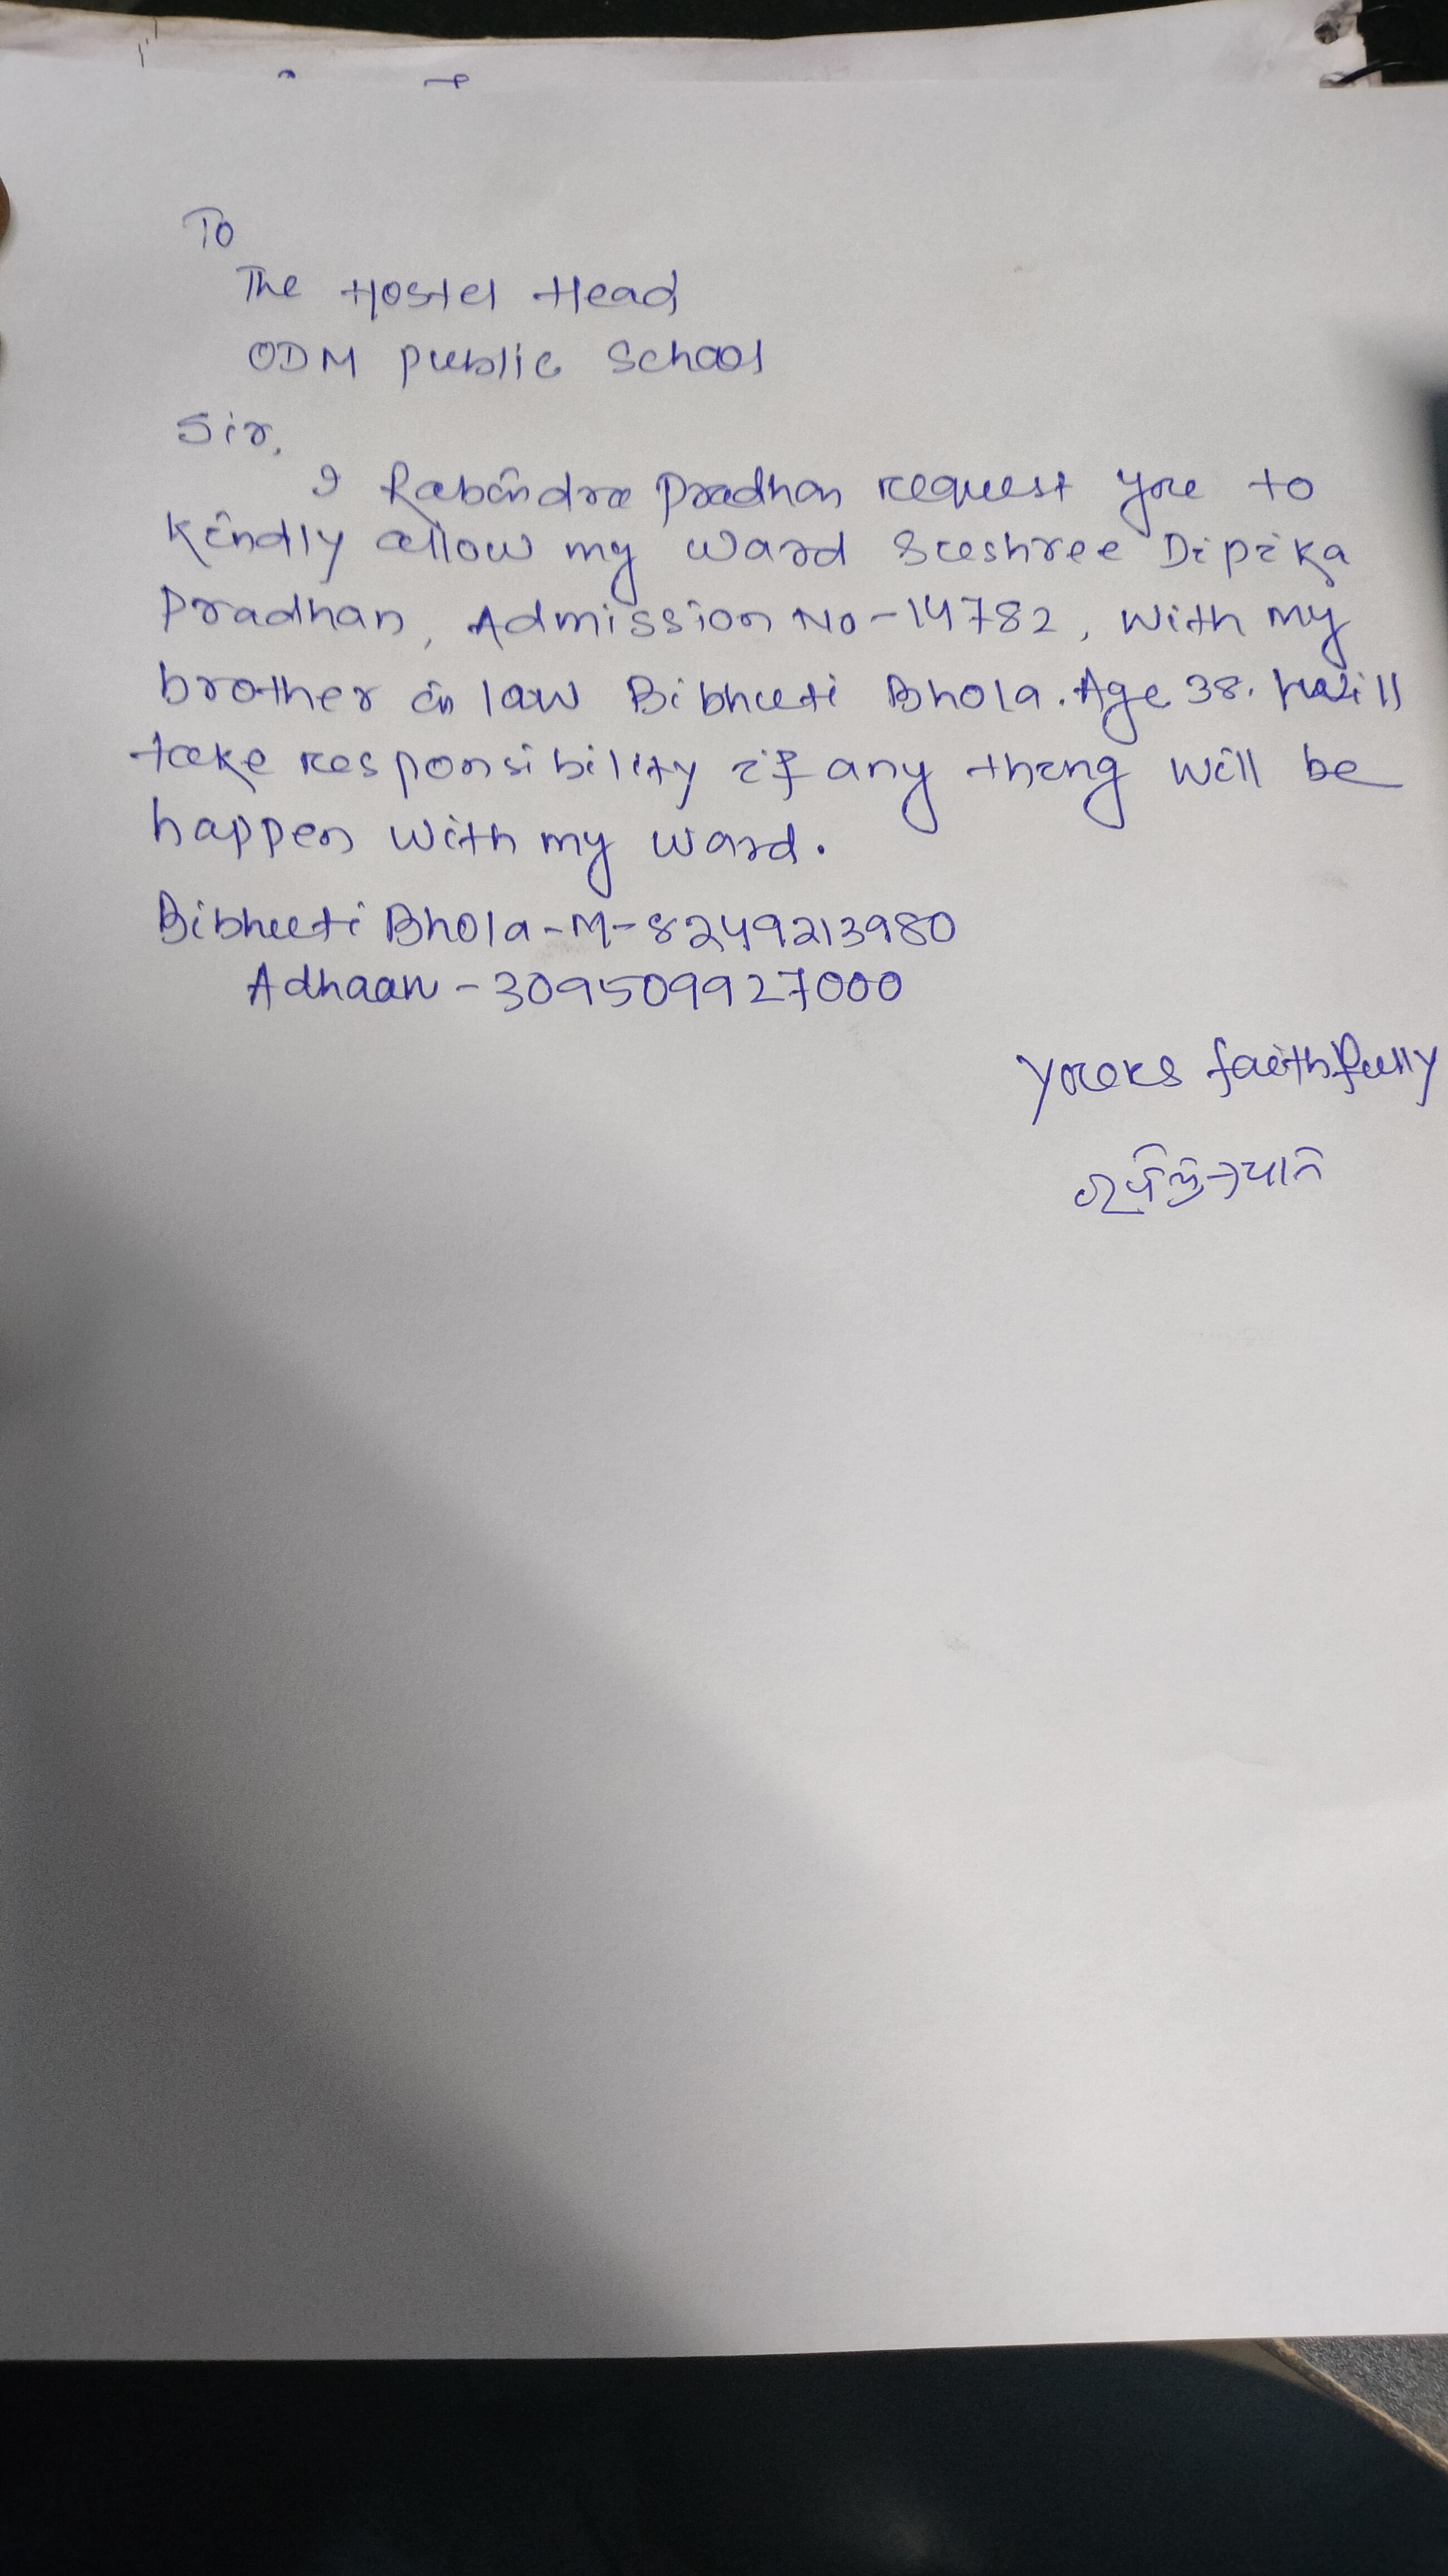 To
The Hostel Head
ODM Public School
Sir,
I Rabindra Pradhan request you to
kindly allow my ward Sushree Dipika
Pradhan, Admission No-14782, with my
brother in law Bibhuti Bhola. Age 38. will
take responsibility if any thing will be
happen with my ward.
Bibhuti Bhola-M-8249213980
Adhaar-309509927000
Yours faithfully